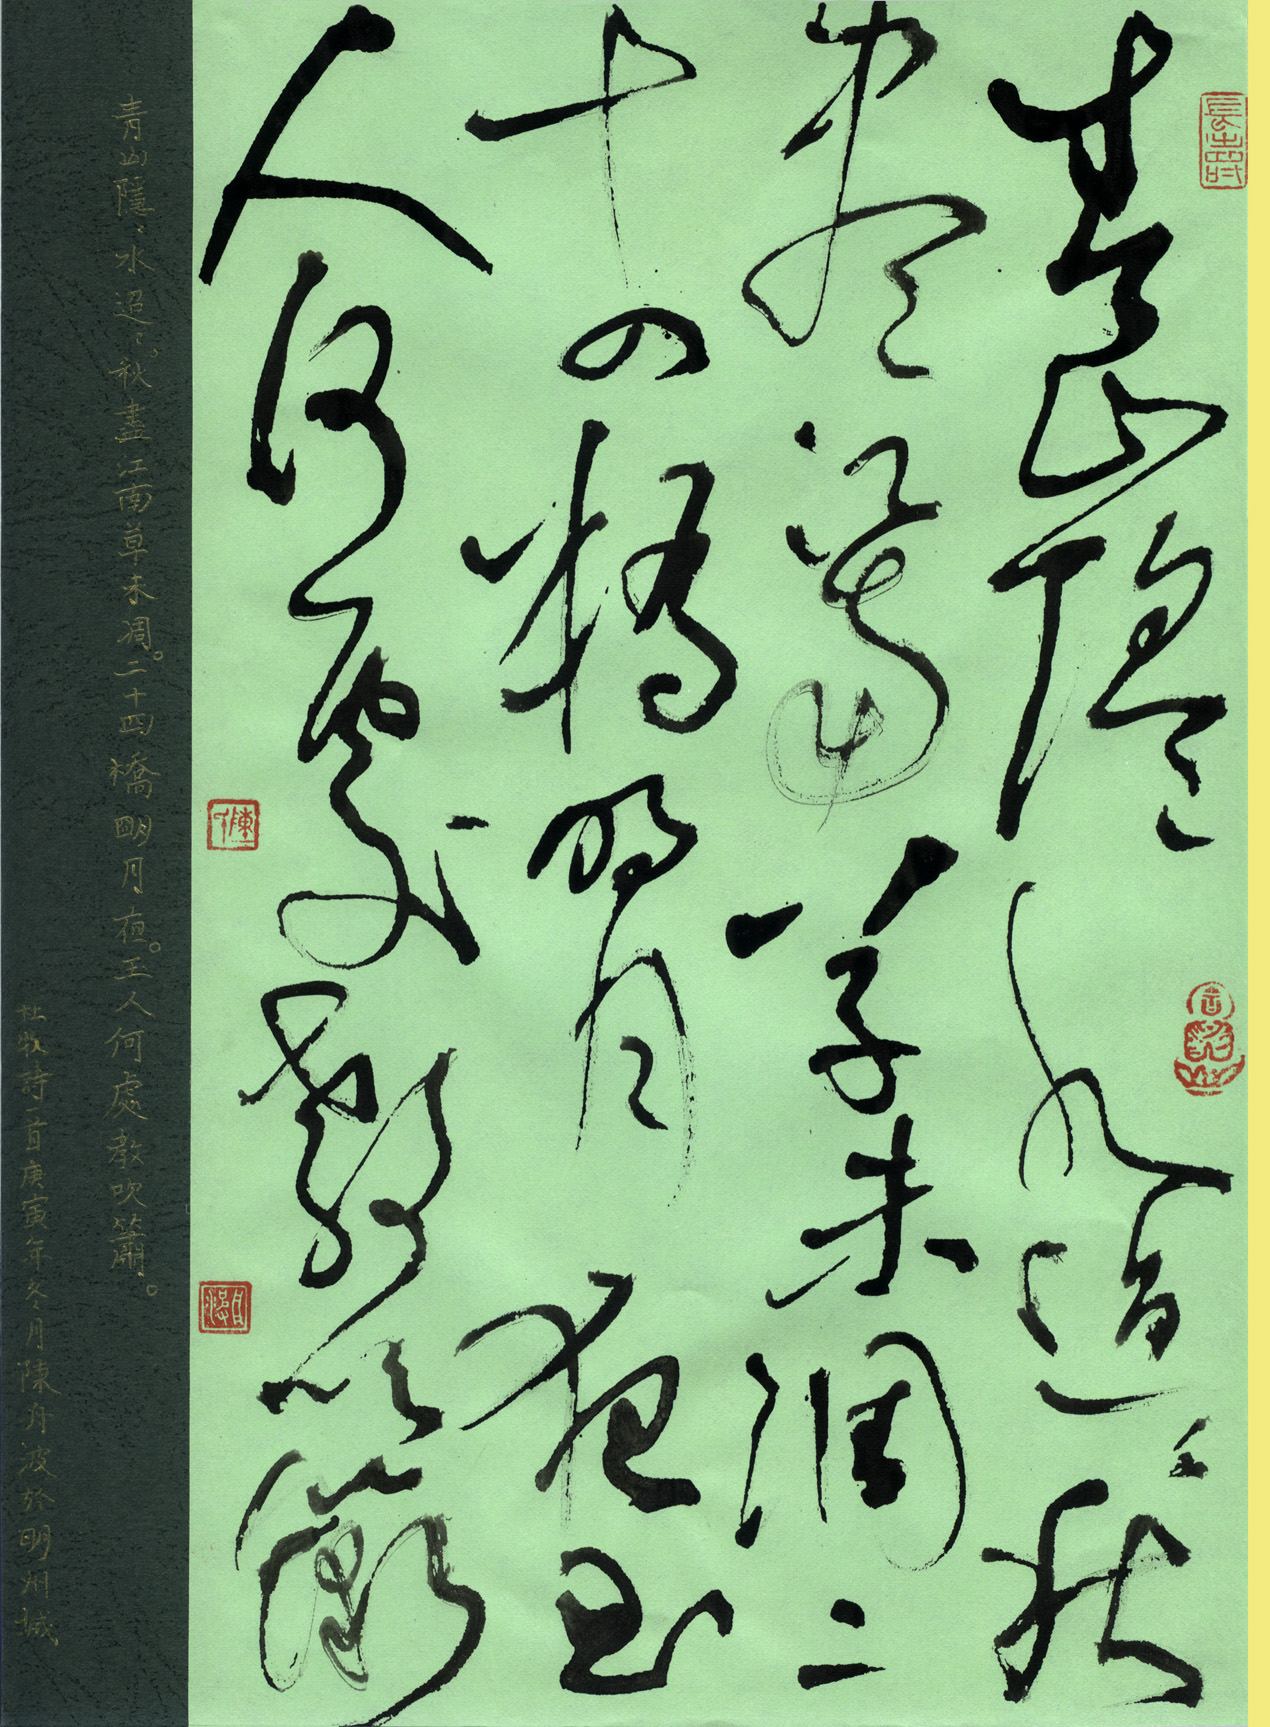 青山隱〻水迢〻秋
盡江南草未凋二
十四橋明月夜玉
人何處教吹簫
長壽
陳
青山隱〻水迢〻。秋盡江南草未凋。二十四橋明月夜。玉人何處教吹簫。
杜牧詩一首庚寅年冬月陳舟波於明州城